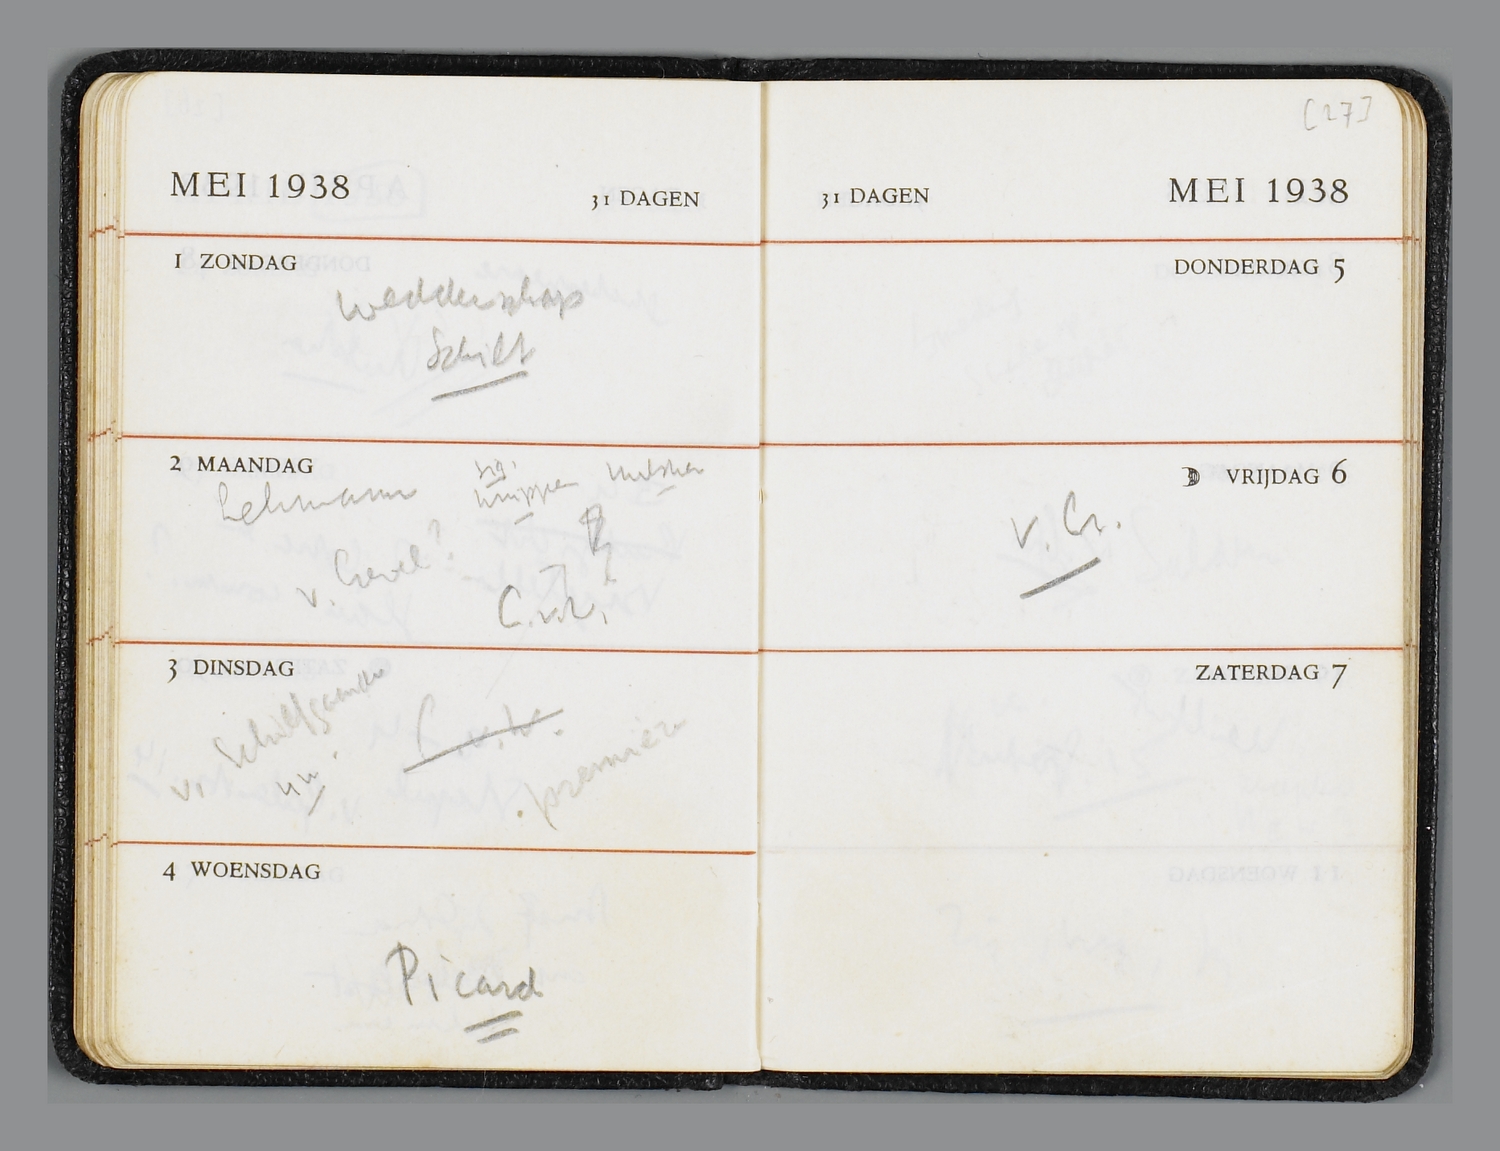 MEI 1938
31 DAGEN
1 ZONDAG
Weddenschap
Schilt
2 MAANDAG
Lehmann
knippen
v. Crevel?
C.v.W.
3 DINSDAG
v. Schilfgaarde
C.v.W.
première
4 WOENSDAG
Picard
[27]
31 DAGEN
MEI 1938
DONDERDAG 5
VRIJDAG 6
v. Cr.
ZATERDAG 7